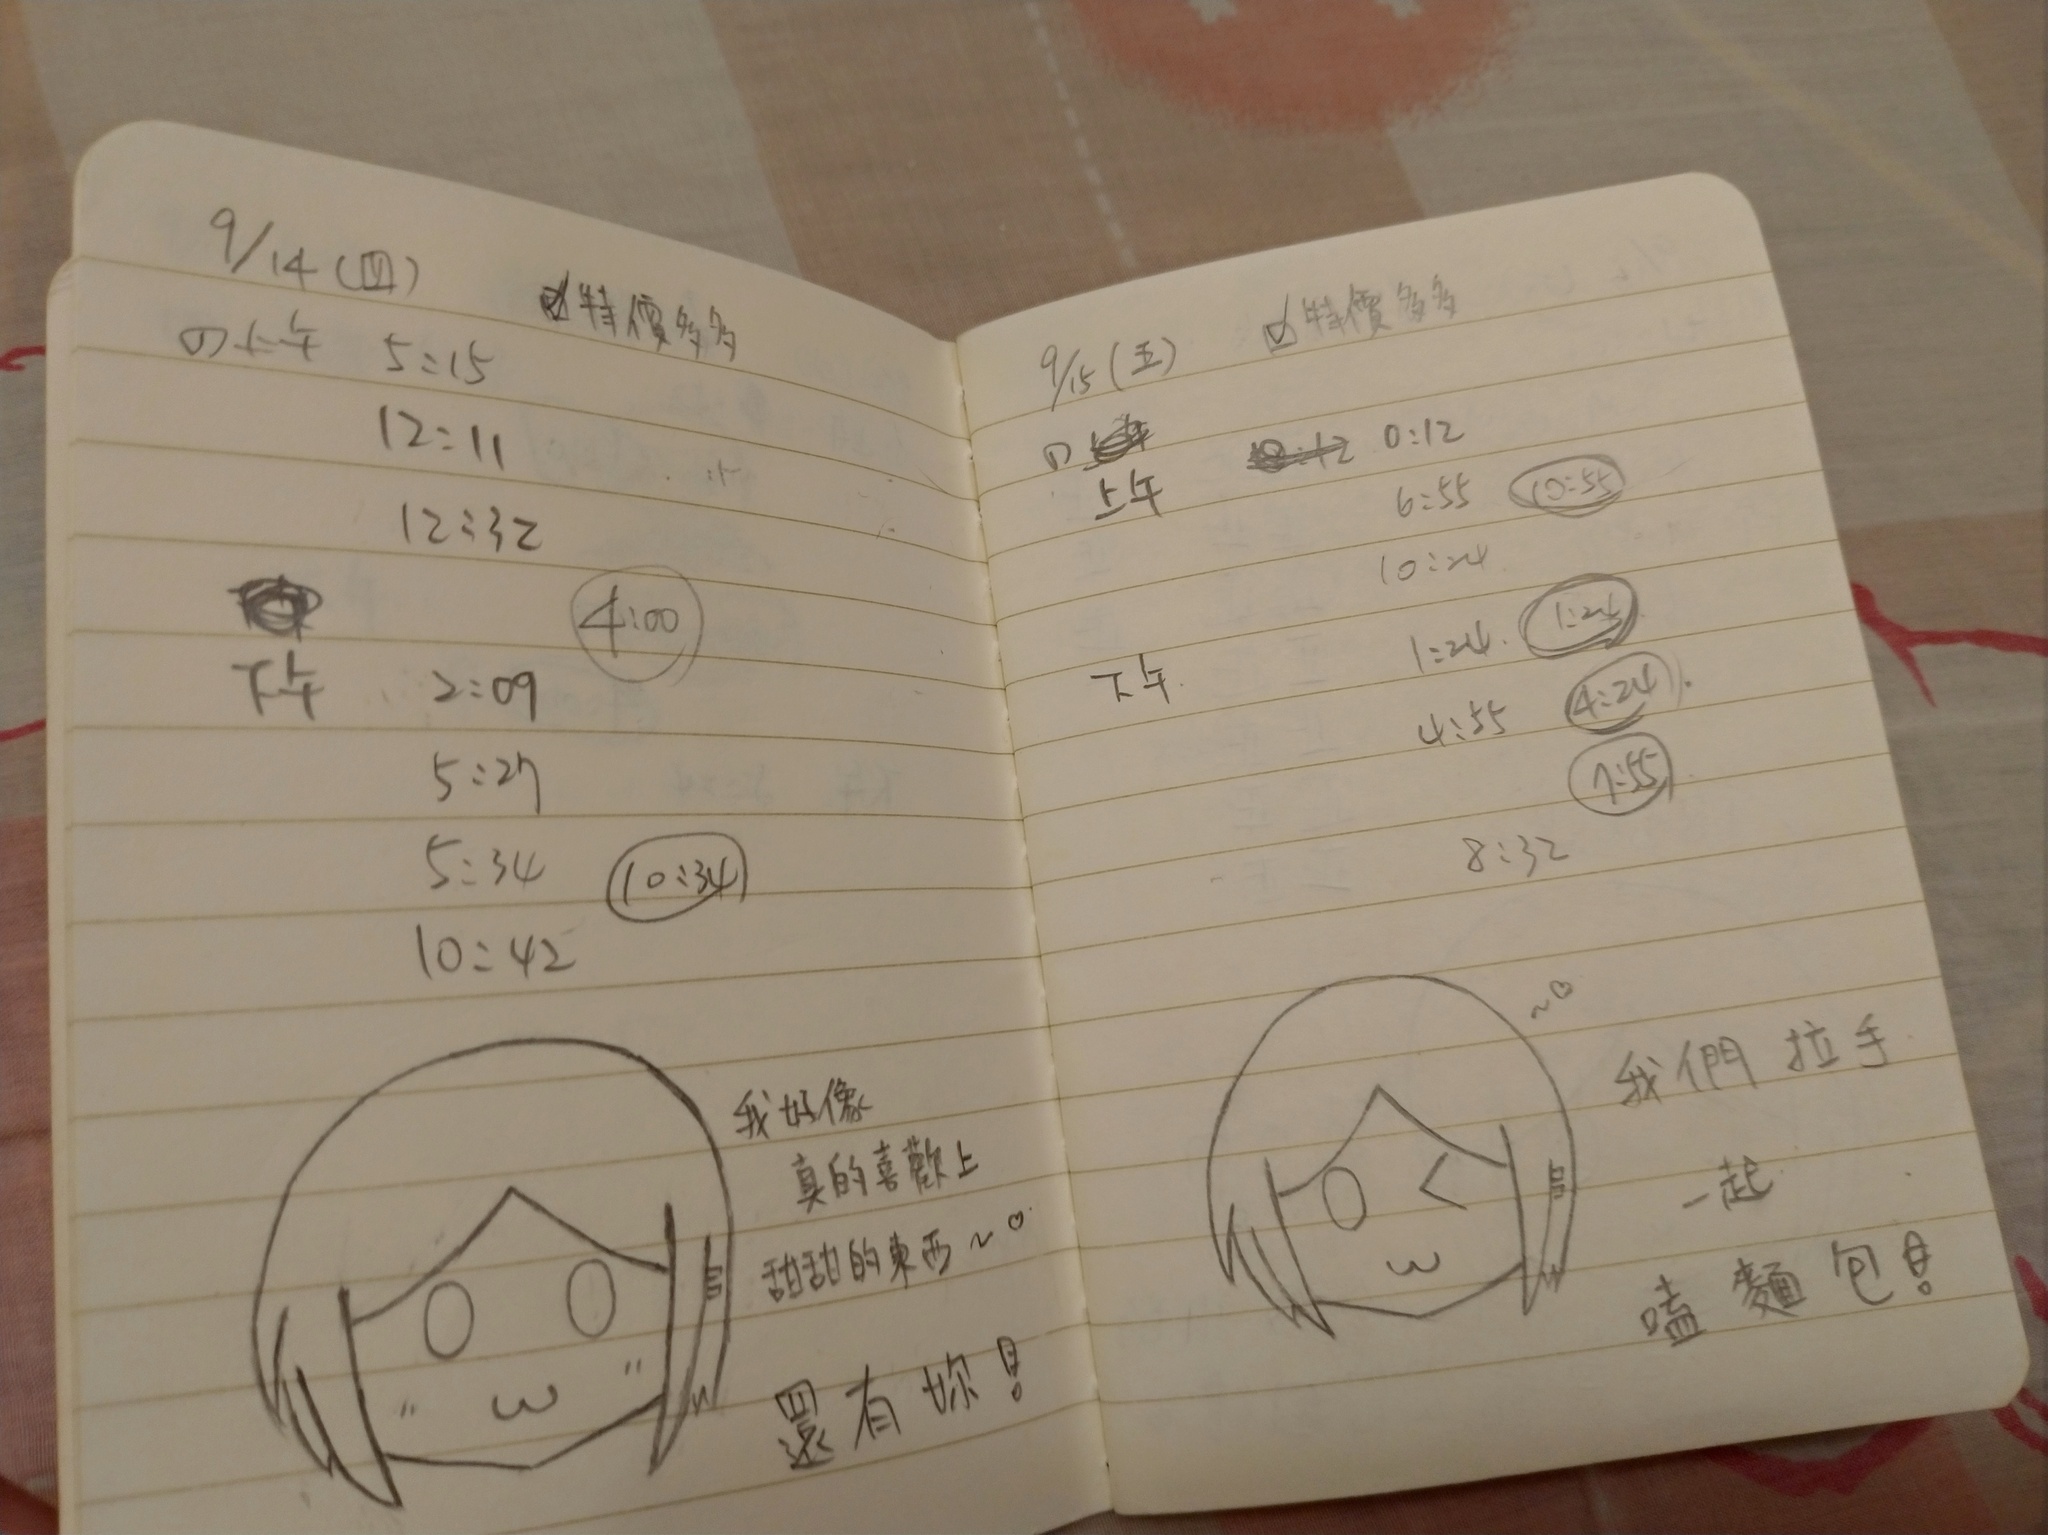 9/14(四)
☑特價多多
の上午 5:15
12:11
12:32
4:00
下午 2:09
5:27
5:34 10:34
10:42
我好像
真的喜歡上
甜甜的東西~♡
還有妳!
9/15(五) ☑特價多多
の
0:12
上午 6:55 10:55
10:24
下午 1:24 1:24
4:55 4:24
7:55
8:32
~♡
我們拉手
一起
嗑麵包!